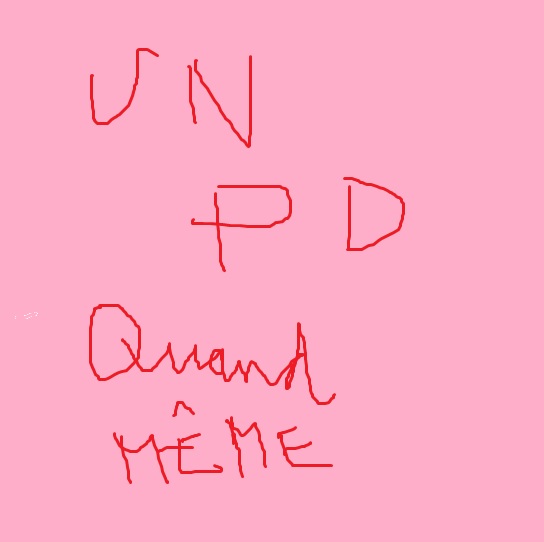 UN
PD
Quand
MÊME